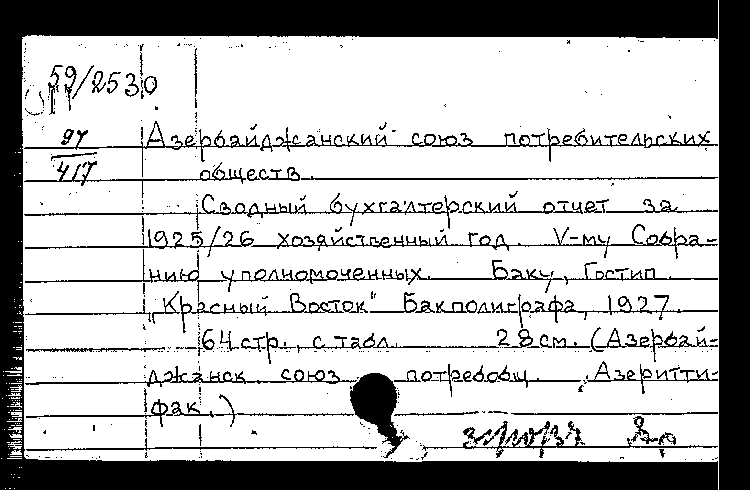 59/2530
97 Азербайджанский союз потребительских
417 обществ.
Сводный бухгалтерский отчет за
1925/26 хозяйственный год. V-му Собра-
нию уполномоченных. Баку, Гостип.
„Красный Восток" Бакполиграфа, 1927.
64 стр., с табл. 28 см. (Азербай-
джанск. союз потребобщ. „Азеритти-
фак".)